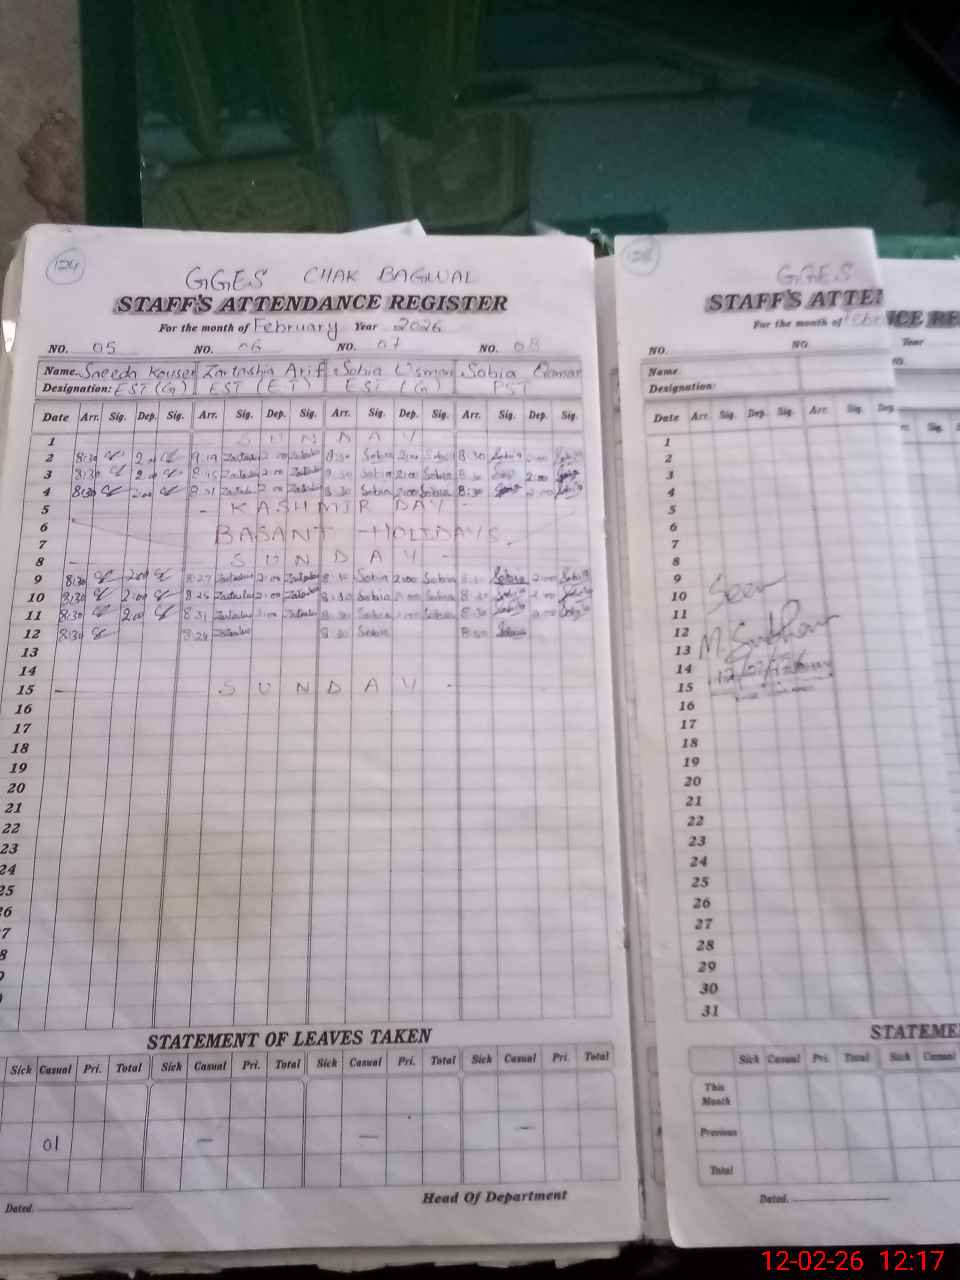 124
GGES CHAK BAGWAL
STAFF'S ATTENDANCE REGISTER
For the month of February Year 2026
NO. 05 NO. 06 NO. 07 NO. 08
Name. Saeeda Kouser Zartashia Arif Sobia Usman Sobia Qamar
Designation: EST (G) EST (E.T) EST (G) PST
Date Arr. Sig. Dep. Sig. Arr. Sig. Dep. Sig. Arr. Sig. Dep. Sig. Arr. Sig. Dep. Sig.
1 SUNDAY
2 8:30 2:00 2:00 8:30 Sobia 2:00 Sobia 8:30 Sobia 2:00 Sobia
3 8:30 2:00 8:15 2:00 8:30 Sobia 2:00 Sobia 8:30 2:00
4 8:30 2:00 8:31 2:00 8:30 Sobia 2:00 Sobia 8:30 2:00 Sobia
5 - KASHMIR DAY -
6 BASANT - HOLIDAYS.
7
8 - SUNDAY -
9 8:30 2:00 8:27 2:00 8:30 Sobia 2:00 Sobia 8:30 Sobia 2:00 Sobia
10 8:30 2:00 8:25 2:00 8:30 Sobia 2:00 Sobia 8:30 Sobia 2:00 Sobia
11 8:30 2:00 8:31 2:00 8:30 Sobia 2:00 Sobia 8:30 Sobia 2:00 Sobia
12 8:30 8:24 8:30 Sobia 8:30 Sobia
13
14
15 - SUNDAY -
16
17
18
19
20
21
22
23
24
25
26
STATEMENT OF LEAVES TAKEN
Sick Casual Pri. Total Sick Casual Pri. Total Sick Casual Pri. Total Sick Casual Pri. Total
01 - - -
Dated. Head Of Department
GGES
STAFF'S ATTE
For the month of
NO. NO.
Name
Designation:
Date Arr. Sig. Dep. Sig. Arr. Sig. Dep.
1
2
3
4
5
6
7
8
9
10 Seen
11
12
13
14
15
16
17
18
19
20
21
22
23
24
25
26
27
28
29
30
31
STATEME
Sick Casual Pri. Total Sick Casual
This Month
Previous
Total
Dated.
NCE RE
Year
12-02-26 12:17